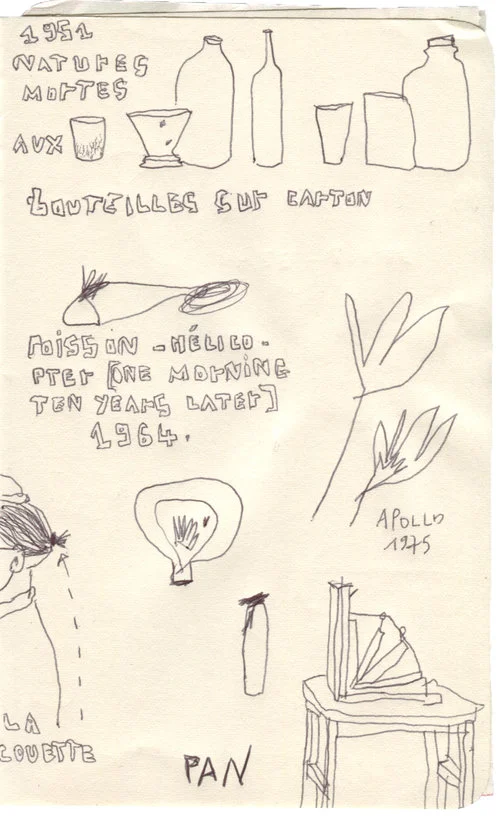 1951
NATURES
MORTES
AUX
BOUTEILLES SUR CARTON
POISSON - HÉLICO -
PTER [ONE MORNING
TEN YEARS LATER]
1964.
APOLLO
1975
LA
COUETTE
PAN